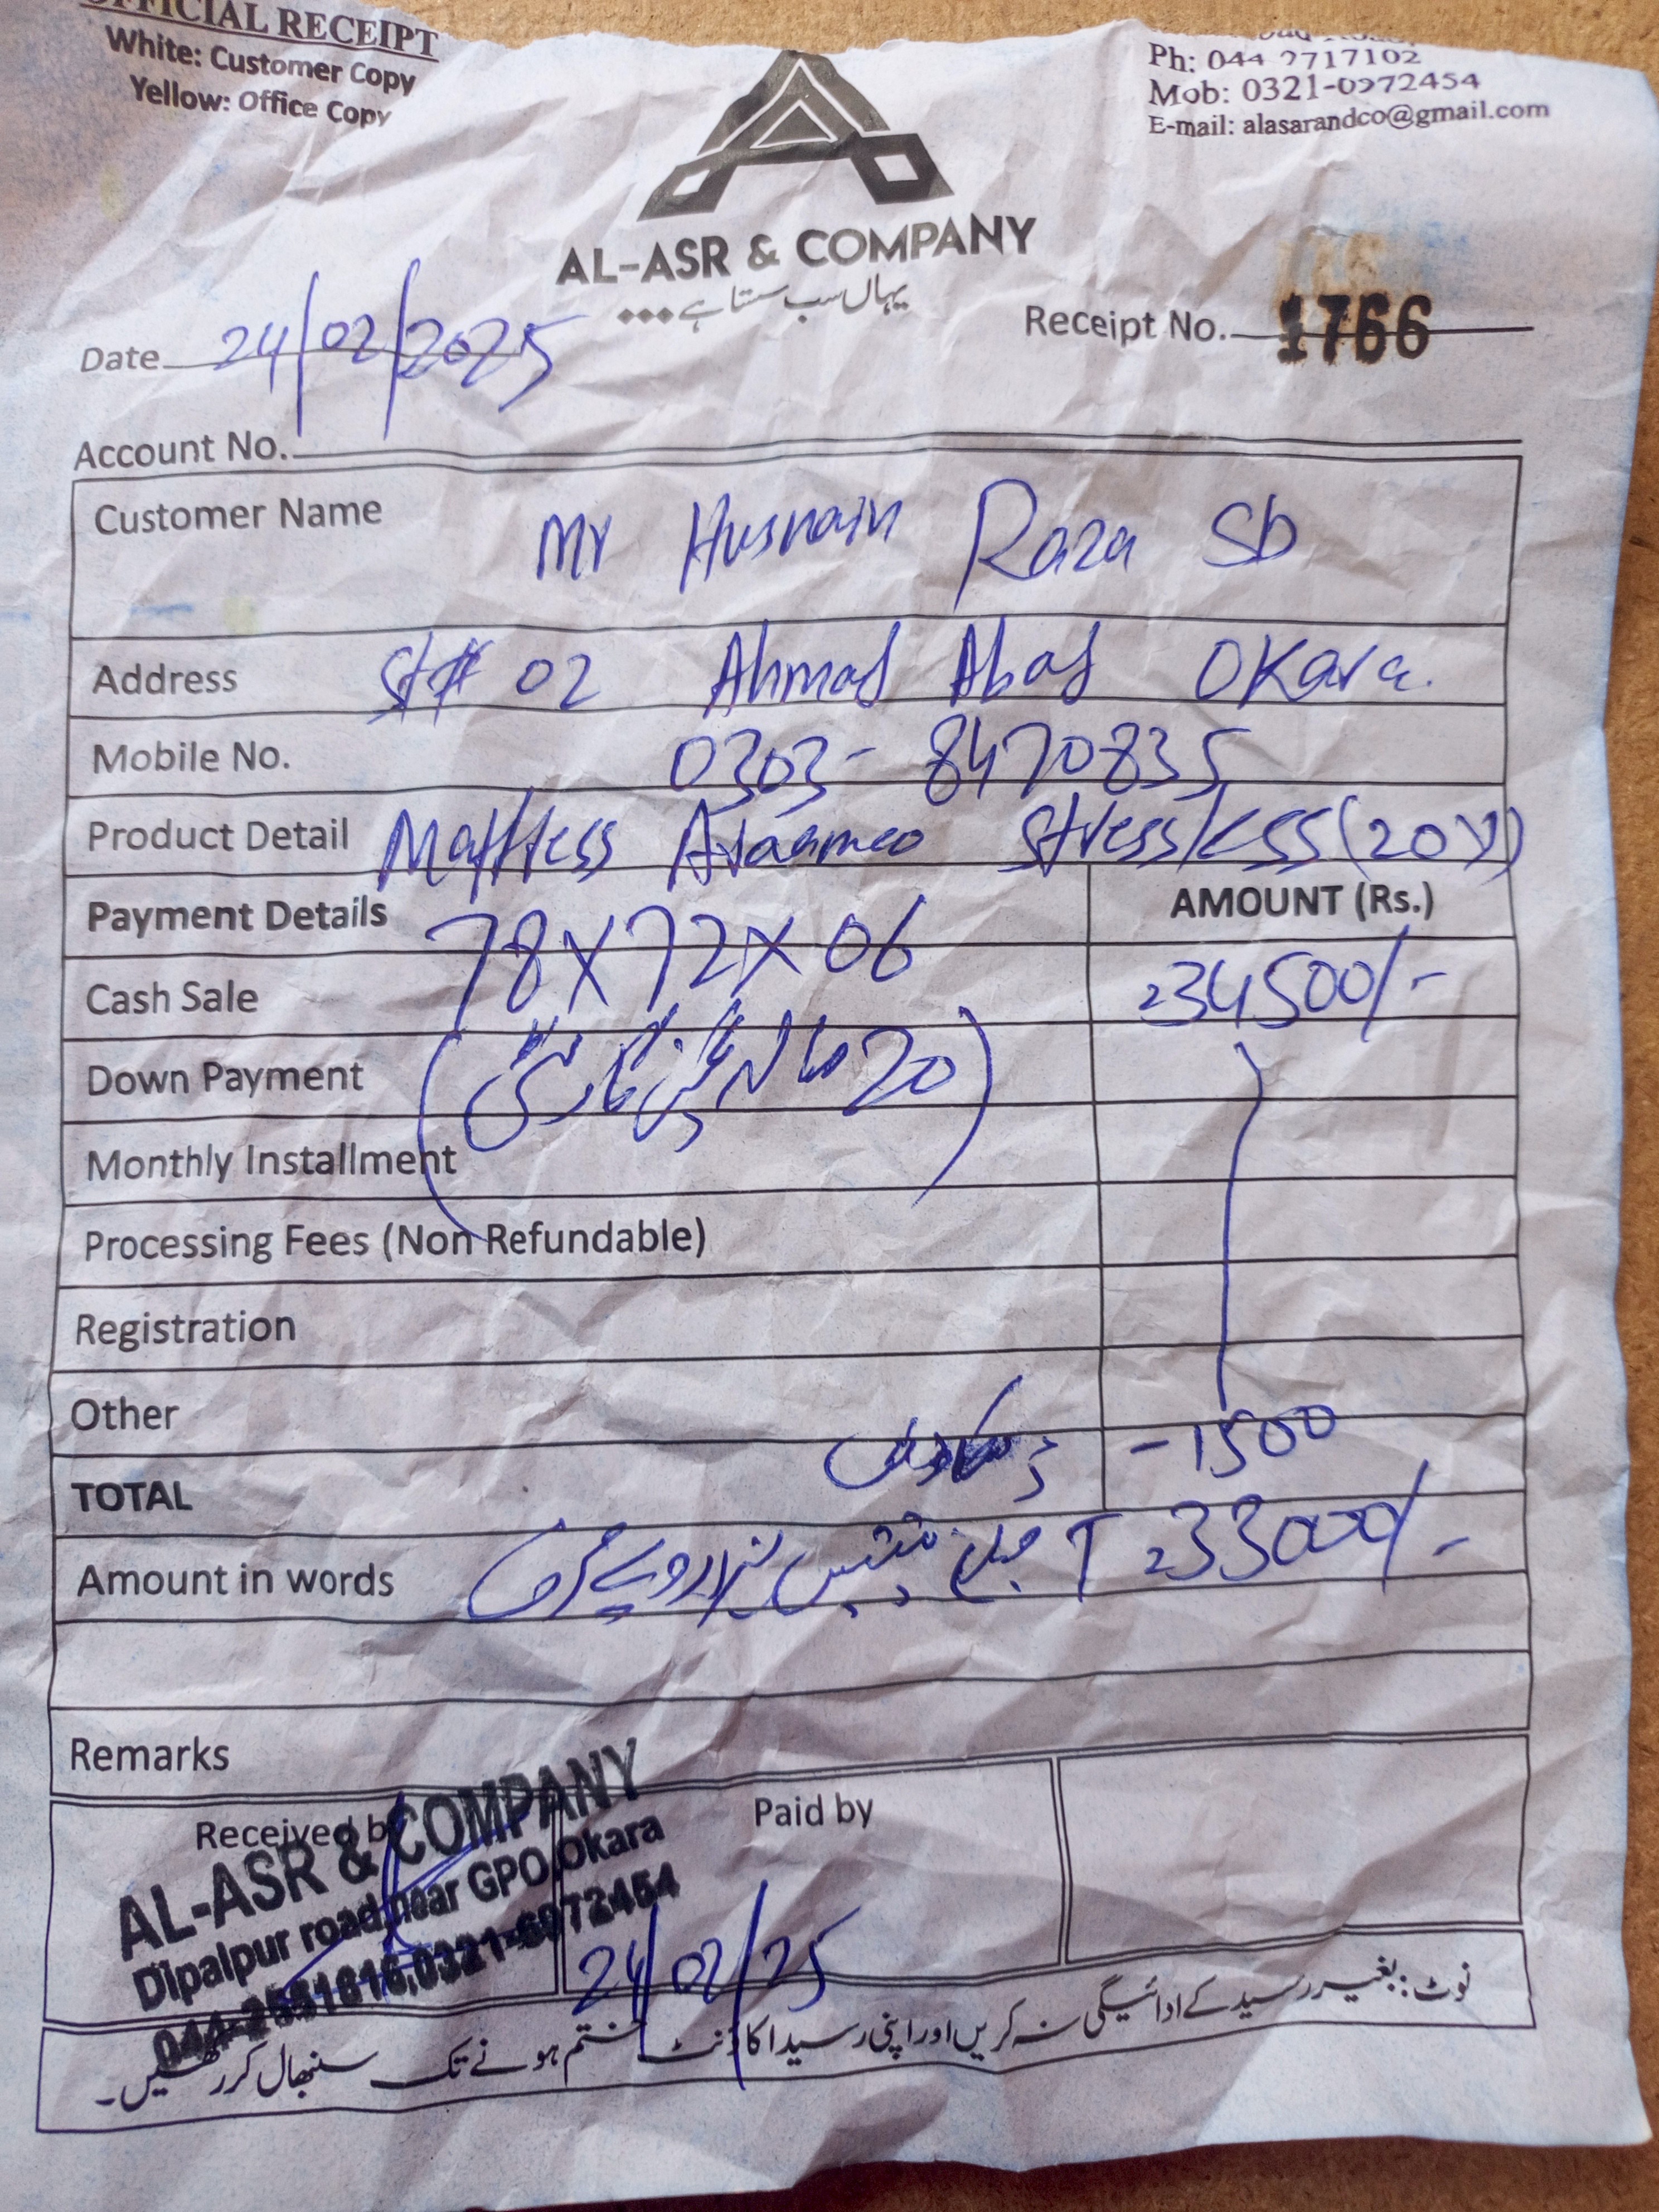 OFFICIAL RECEIPT
White: Customer Copy
Yellow: Office Copy
Ph: 044 2717102
Mob: 0321-6972454
E-mail: alasarandco@gmail.com
AL-ASR & COMPANY
یہاں سب سستا ہے...
Date 24/02/2025
Receipt No. 1766
Account No.
Customer Name Mr Husnain Raza Sb
Address St# 02 Ahmad Abad Okara.
Mobile No. 0303-8470835
Product Detail Mattress Araamco Stressless (20Y)
Payment Details 78X72X06 AMOUNT (Rs.)
Cash Sale 34500/-
Down Payment (20 سالہ گارنٹی)
Monthly Installment
Processing Fees (Non Refundable)
Registration
Other
ڈسکاونٹ -1500
TOTAL
Amount in words تینتیس ہزار روپے صرف T 33000/-
Remarks
Received by Paid by
AL-ASR & COMPANY
Dipalpur road, near GPO, Okara
044-2551616, 0321-6972454
24/02/25
نوٹ: بغیر رسید کے ادائیگی نہ کریں اور اپنی رسید اکاؤنٹ ختم ہونے تک سنبھال کر رکھیں۔